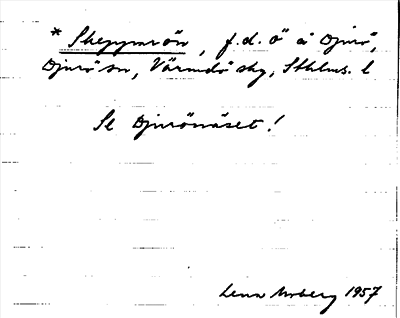 * Skeppsrön, f.d. ö å Djurö,
Djurö sn, Värmdö skg, Sthlms. l
Se Djurönäset!
Lena Moberg 1957